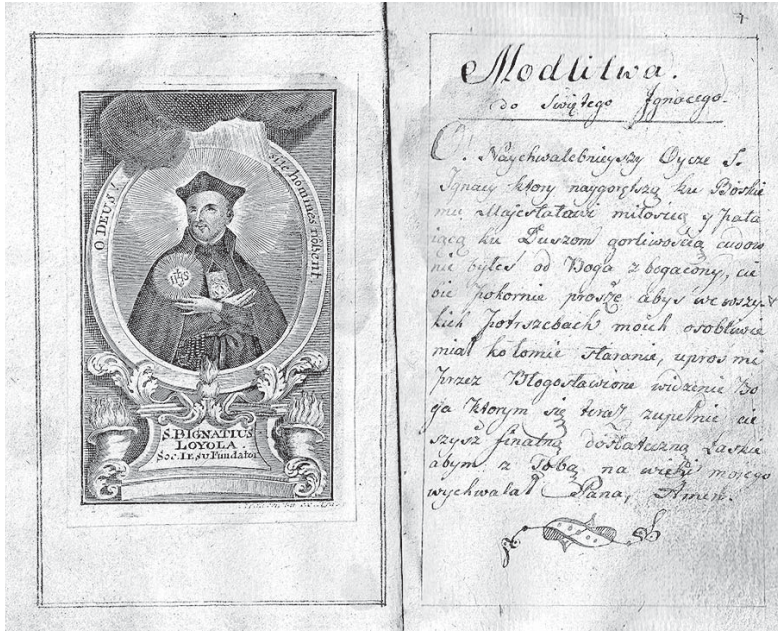 O DEUS!
sic homines nôssent
S.P.IGNATIUS
LOYOLA
Soc. IESU Fundator
Modlitwa.
do Swiętego Jgnacego.
O. Naychwalebnieyszy Oycze S.
Ignacy ktory naygorętszą ku Boskie
mu Majestatowi miłoscią y pała
iącą ku Duszom gorliwoscią cudow
nie byłes od Boga zbogacony, cie
bie pokornie proszę abys we wszy
kich potrszebach moich osobliwie
miał kołomie staranie, uproś mi
przez Błogosławione widzenie Bo
ga ktorym się teraz zupełnie cie
szysz finalną dostateczną Łaskę
abym z Tobą na wieki mojego
wychwalał Pana, Amen.